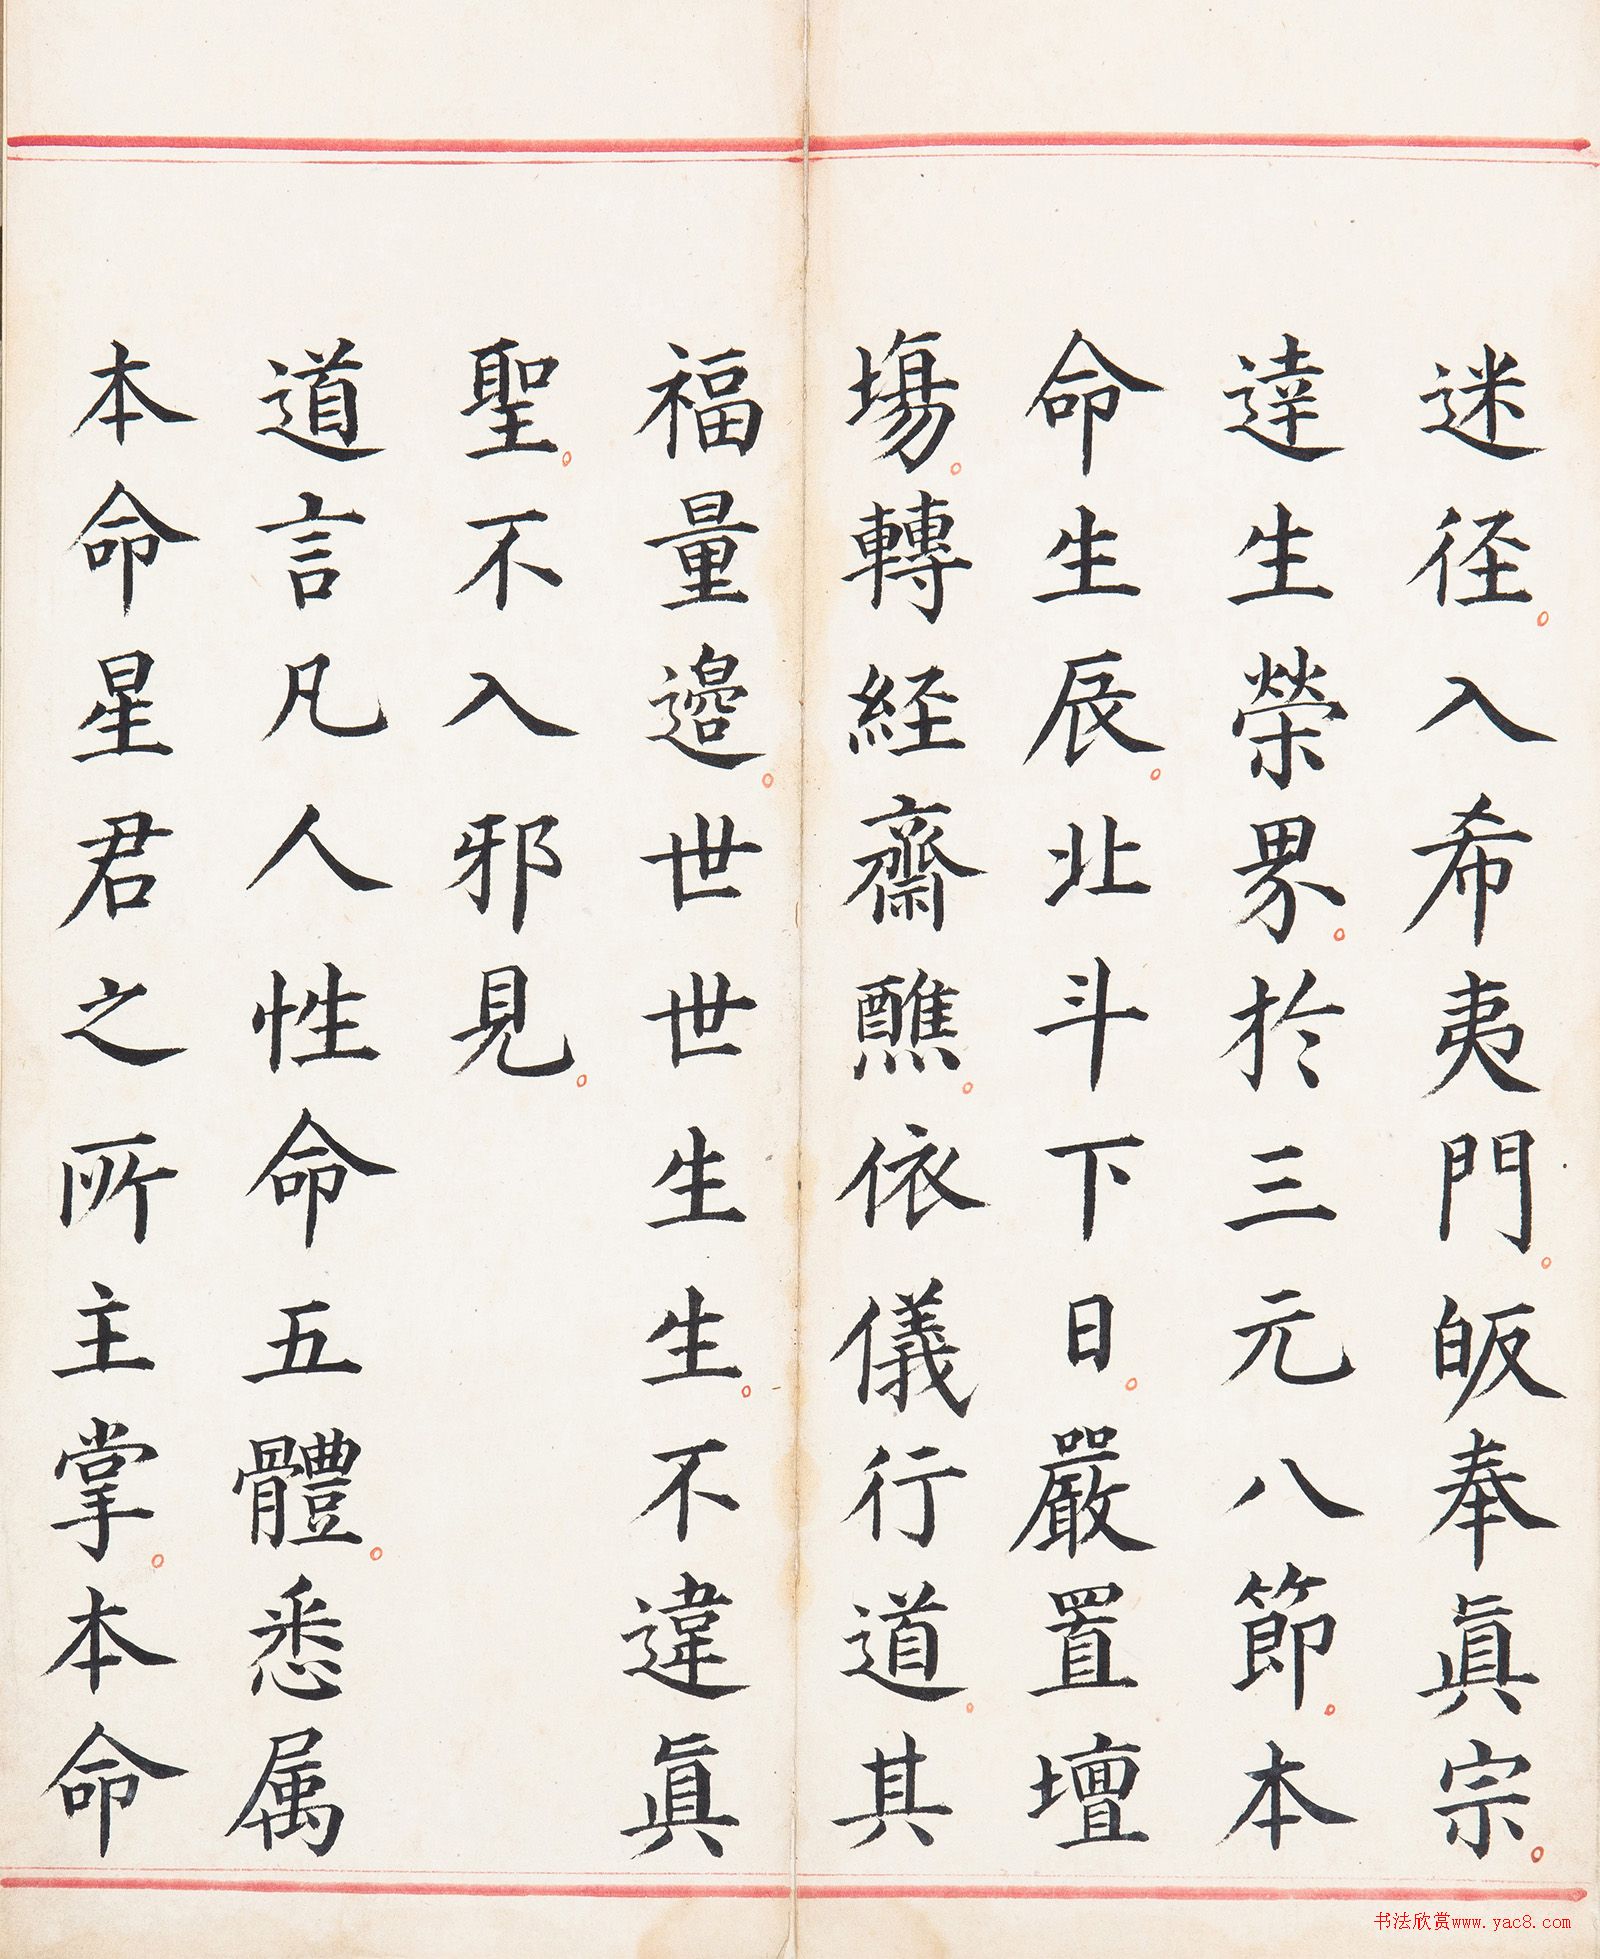 迷径。入希夷門。皈奉眞宗。
達生榮界。於三元八節。本
命生辰。北斗下日。嚴置壇
塲。轉経齋醮。依儀行道。其
福量邉。世世生生。不違眞
聖。不入邪見。
道言凡人性命五體。悉属
本命星君之所主掌。本命
书法欣赏www.yac8.com